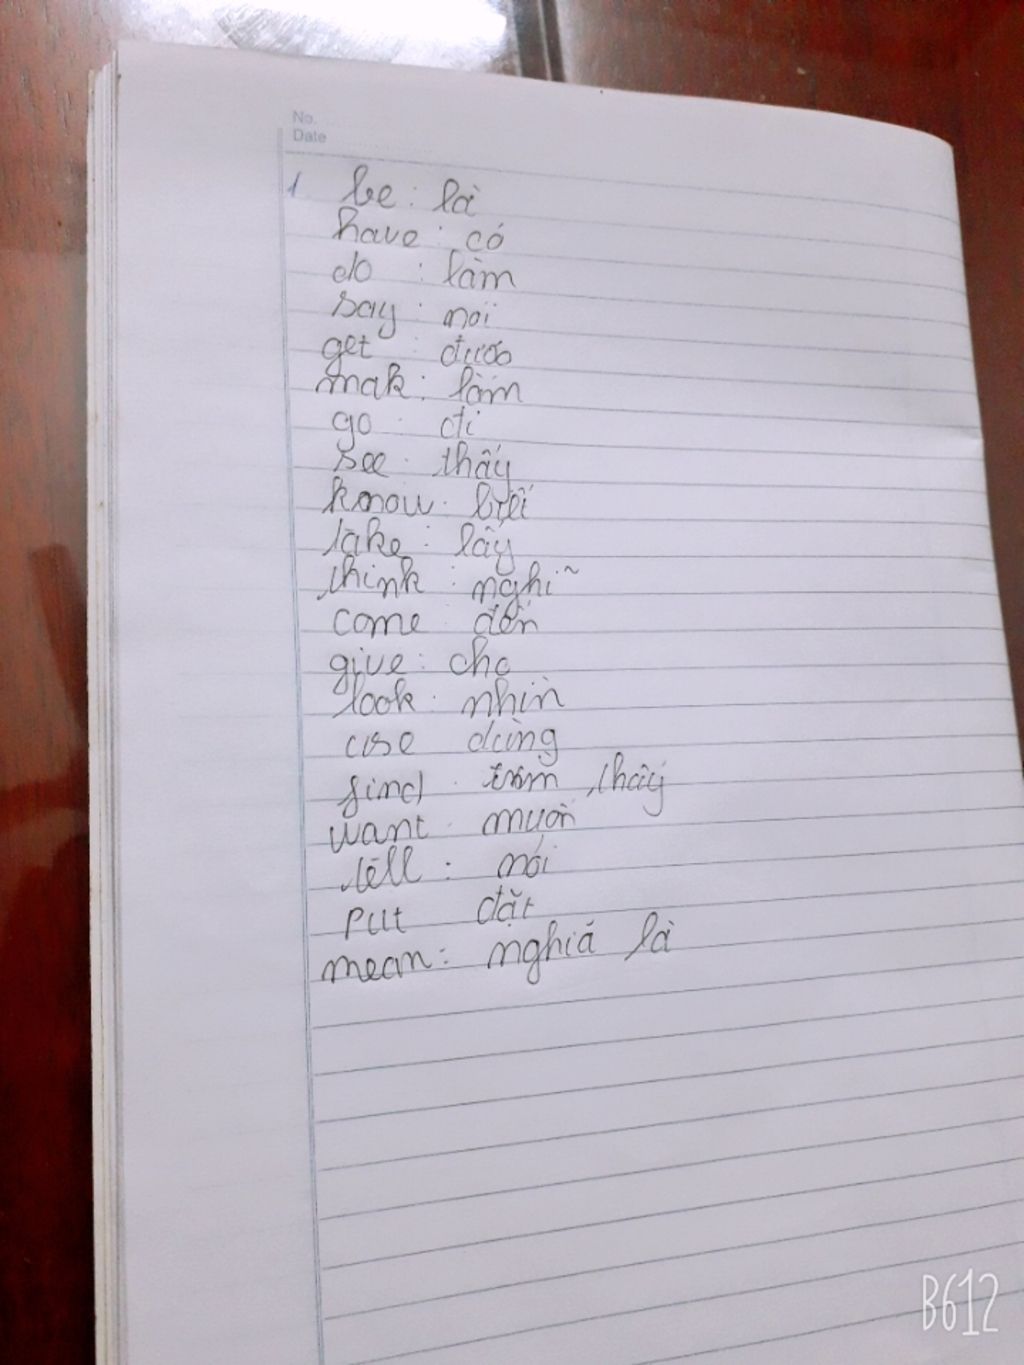 No.
Date
1 be : là
have : có
do : làm
say : nói
get : được
mak : làm
go : đi
see : thấy
know : biết
take : lấy
think : nghĩ
come đến
give : cho
look : nhìn
use dùng
find : tìm, thấy
want : muốn
tell : nói
put đặt
mean : nghiã là
B612